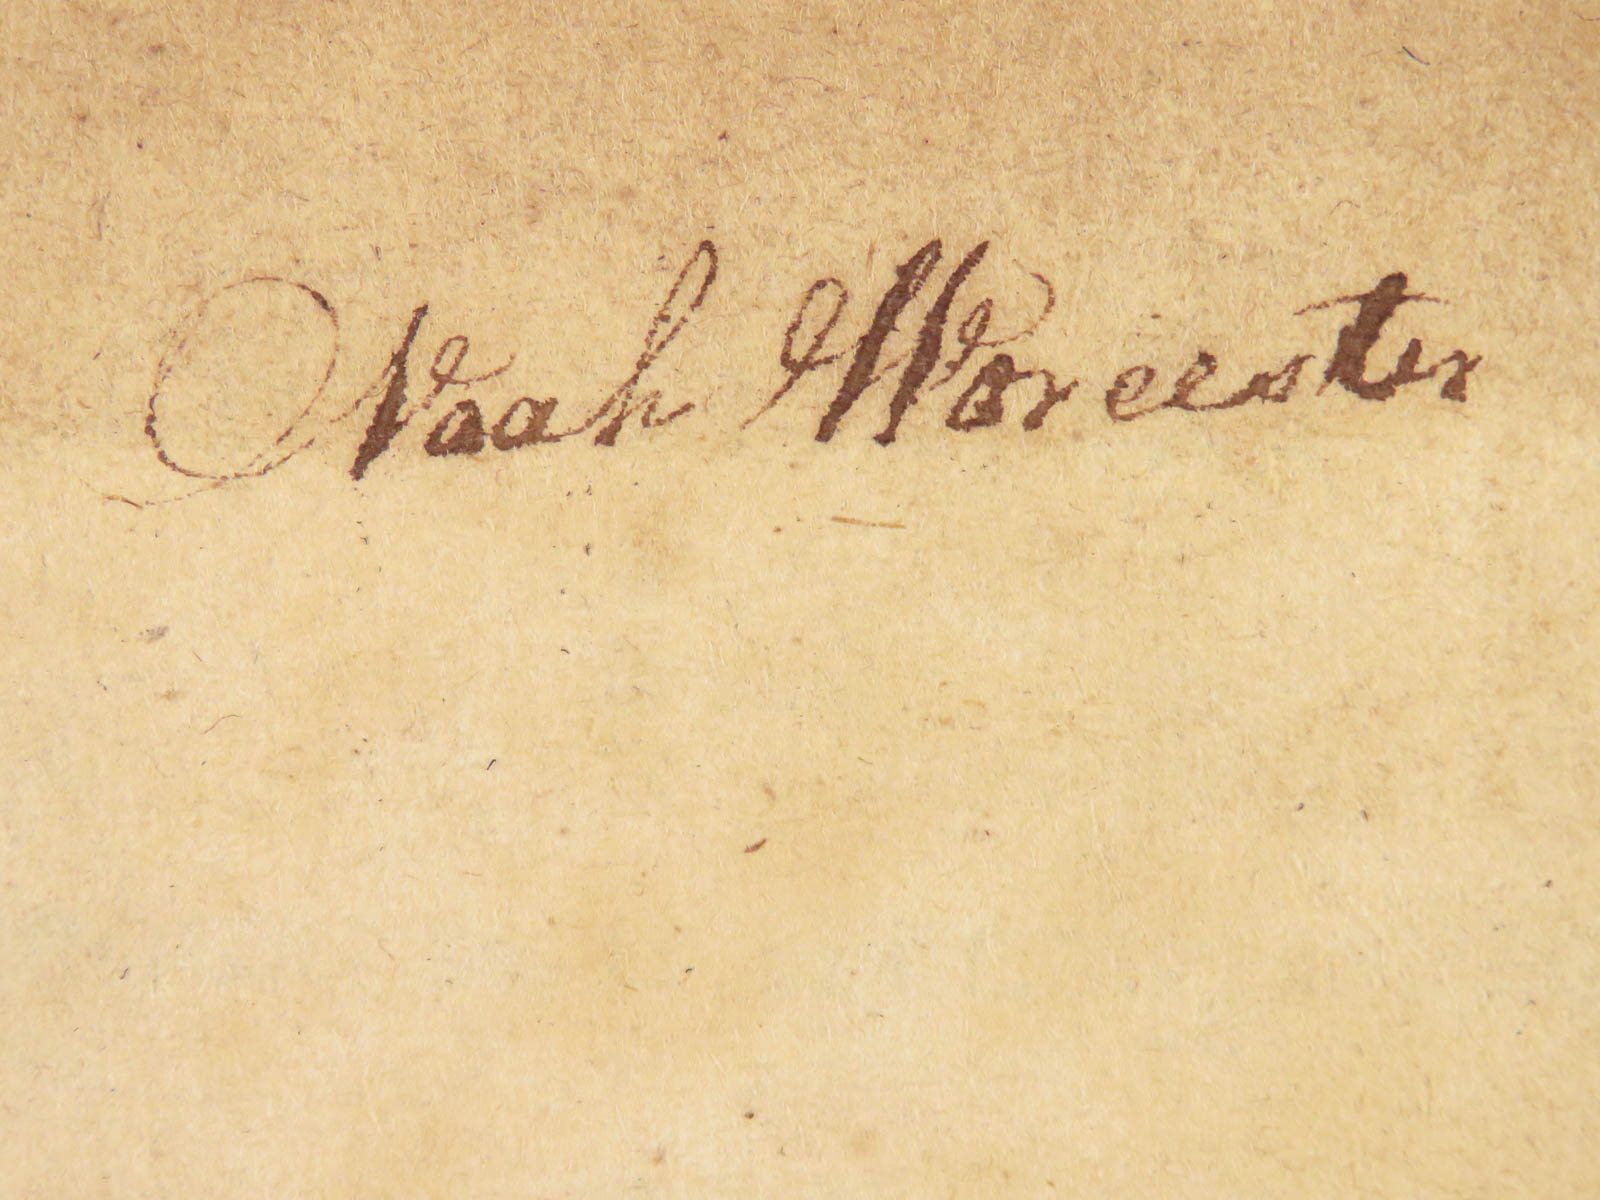 Noah Worcester